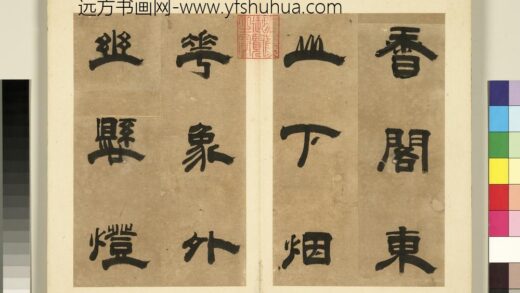 远方书画网-www.yfshuhua.com
香閣東
山下烟
花象外
幽懸燈